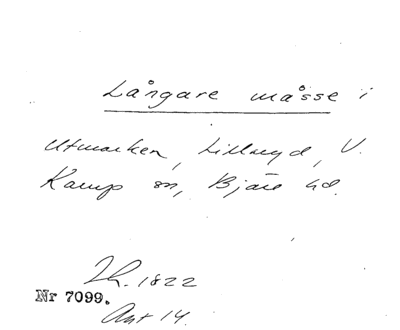 Långare måsse i
Utmarken, Lillaryd, V.
Karup sn, Bjäre hd.
Lh. 1822
Nr 7099.
Ant 14.